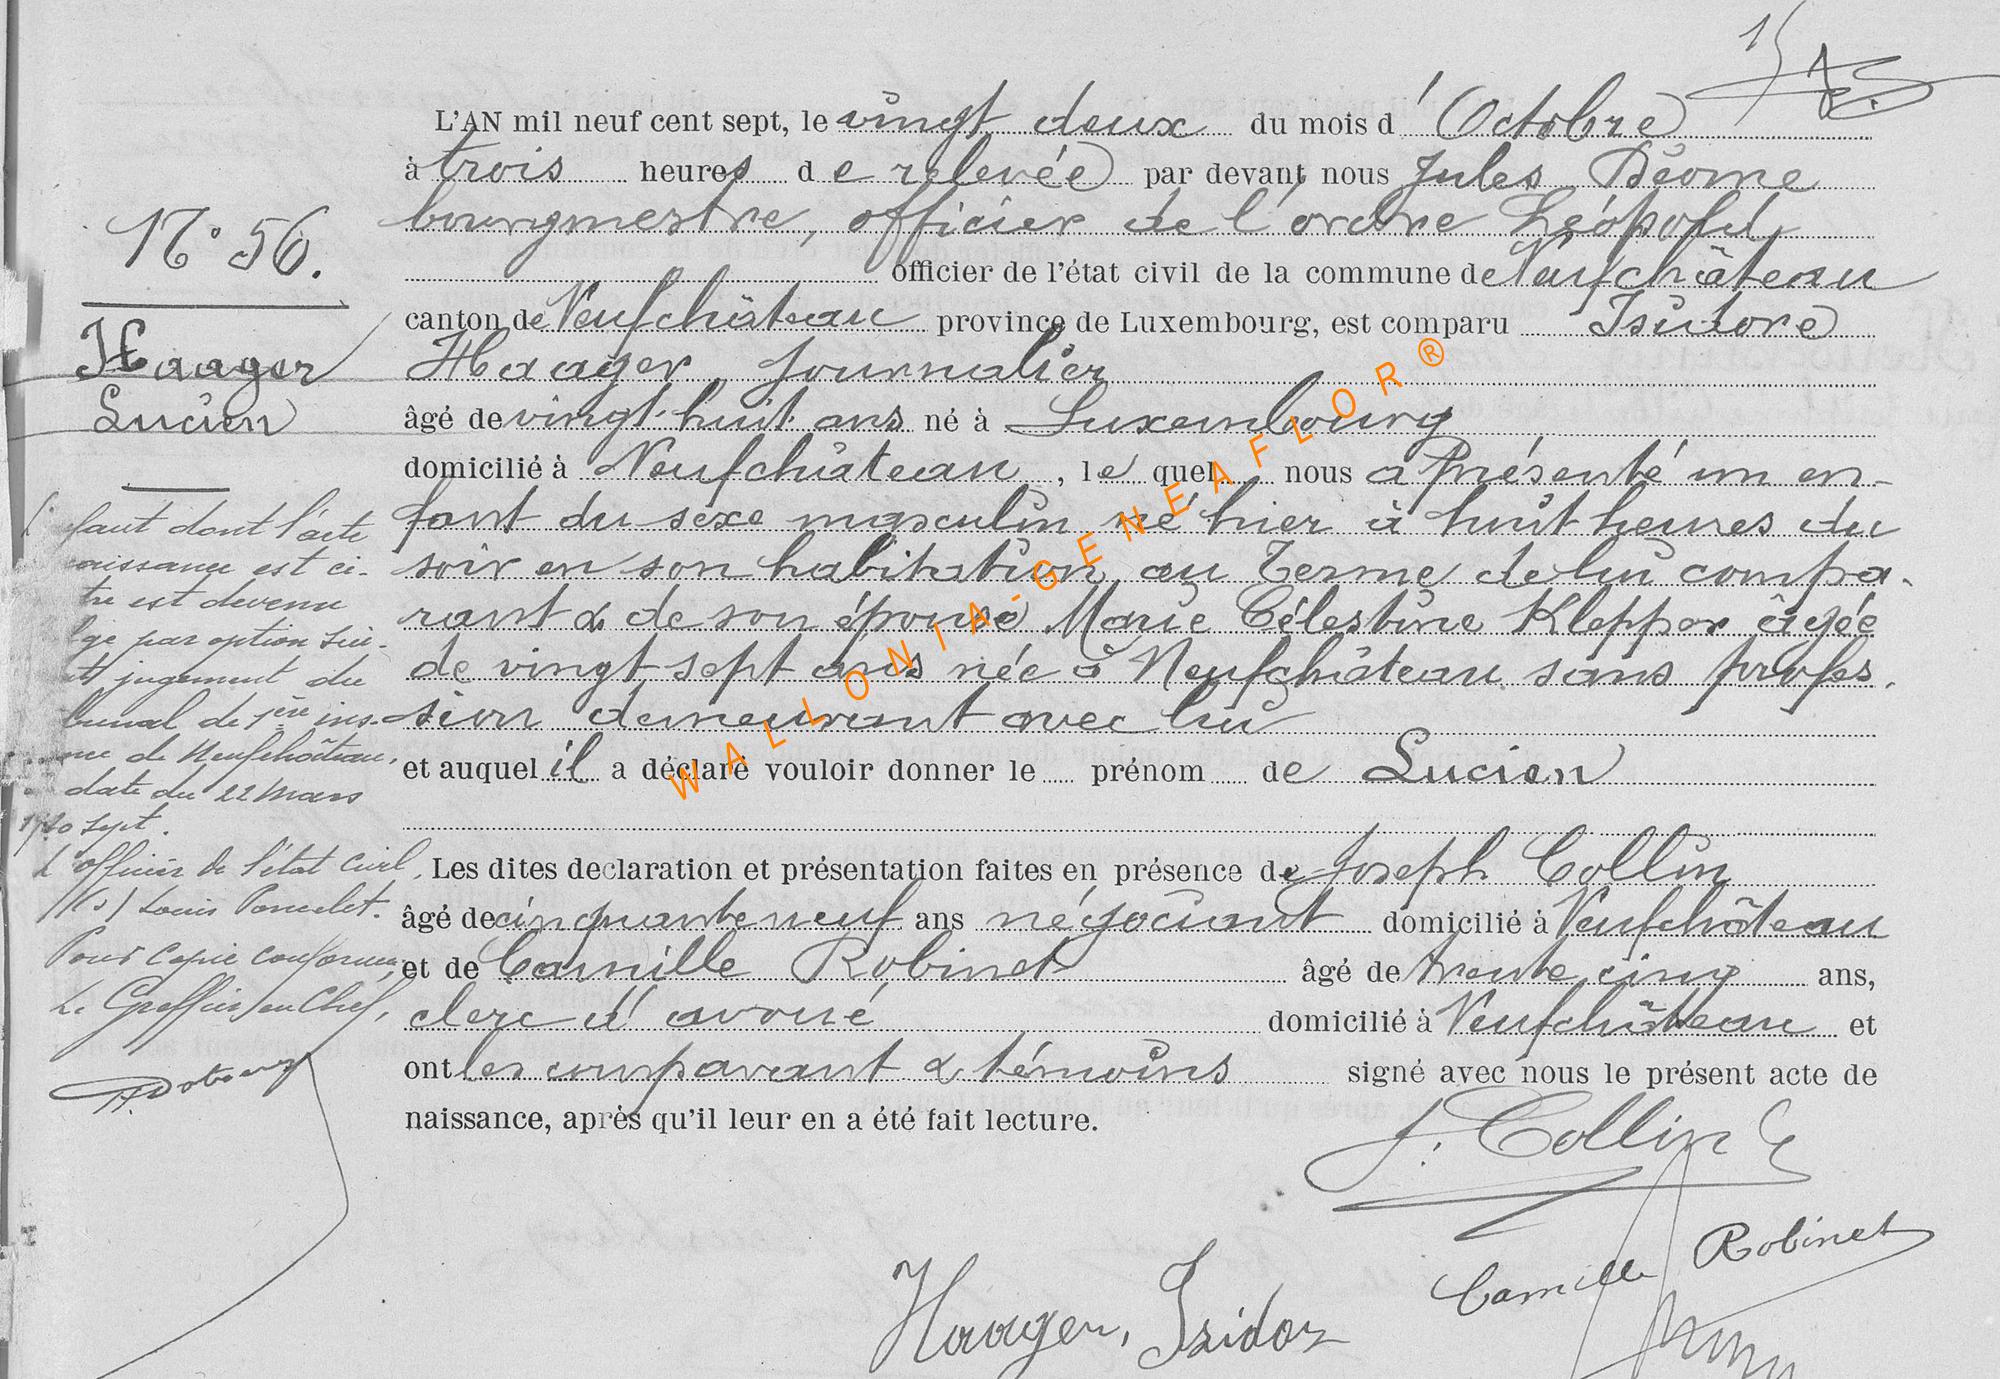 15
L'AN mil neuf cent sept, le vingt deux du mois d'Octobre
à trois heures de relevée par devant nous Jules
bourgmestre, officier de l'ordre Léopold,
officier de l'état civil de la commune de Neufchâteau
canton de Neufchâteau province de Luxembourg, est comparu Isidore
Haager, Journalier
âgé de vingt huit ans né à Luxembourg
domicilié à Neufchâteau, lequel nous a Présenté un en-
fant du sexe masculin né hier à huit heures du
soir en son habitation, au Terme de lui compa-
rant & de son épouse Marie Célestine Klepper âgée
de vingt sept ans née à Neufchâteau sans profes.
sion demeurant avec lui
et auquel il a déclaré vouloir donner le prénom de Lucien
Les dites declaration et présentation faites en présence de Joseph Collin
âgé de cinquante neuf ans négociant domicilié à Neufchâteau
et de Camille Robinet âgé de trente cinq ans,
clerc d'avoué domicilié à Neufchâteau et
ont les comparant & témoins signé avec nous le présent acte de
naissance, après qu'il leur en a été fait lecture.
N° 56.
Haager
Lucien
L' fant dont l'acte
naissance est ci-
tre est devenu
lge par option sui-
jugement du
bunal de 1ère ins-
nce de Neufchâteau,
date du 22 Mars
sept.
L'officier de l'état civil,
(s) Louis Poncelet.
Pour Copie conforme,
Le Greffier en Chef,
J. Collin
Camille Robinet
Haager, Isidor
WALLONIA-GENEAFLOR®